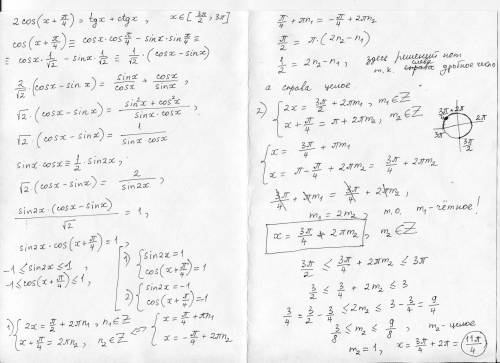 2cos(x+π/4) = tgx + ctgx , x∈[3π/2 ; 3π]
cos(x+π/4) ≡ cosx·cos π/4 − sinx·sin π/4 ≡
≡ cosx·1/√2 − sinx·1/√2 ≡ 1/√2·(cosx − sinx)
2/√2·(cosx − sinx) = sinx/cosx + cosx/sinx ,
√2·(cosx − sinx) = (sin²x + cos²x)/(sinx·cosx) ,
√2·(cosx − sinx) = 1/(sinx·cosx)
sinx·cosx ≡ 1/2·sin2x ,
√2·(cosx − sinx) = 2/sin2x ,
sin2x·(cosx − sinx)/√2 = 1 ,
sin2x·cos(x+π/4) = 1 ,
−1 ≤ sin2x ≤ 1 ,
−1 ≤ cos(x+π/4) ≤ 1 ,
1) { sin2x = 1
cos(x+π/4) = 1
2) { sin2x = −1
cos(x+π/4) = 1
1) { 2x = π/2 + 2πn₁ , n₁∈Z
x + π/4 = 2πn₂ , n₂∈Z
⇔ { x = π/4 + πn₁
x = −π/4 + 2πn₂
π/4 + πn₁ = −π/4 + 2πn₂
π/2 = π·(2n₂ − n₁)
1/2 = 2n₂ − n₁ , здесь решений нет
т.к. слева дробное число
а справа целое.
2) { 2x = 3π/2 + 2πm₁ , m₁∈Z
x + π/4 = π + 2πm₂ , m₂∈Z
{ x = 3π/4 + πm₁
x = π − π/4 + 2πm₂ = 3π/4 + 2πm₂
3π/4 + πm₁ = 3π/4 + 2πm₂ ,
m₁ = 2m₂ , т.о. m₁ – чётное!
x = 3π/4 + 2πm₂ , m₂∈Z
3π/4 + 2π
2π
3π
3π/2
3π/2 ≤ 3π/4 + 2πm₂ ≤ 3π
3/2 ≤ 3/4 + 2m₂ ≤ 3
3/4 = 3/2 − 3/4 ≤ 2m₂ ≤ 3 − 3/4 = 9/4
3/8 ≤ m₂ ≤ 9/8 , m₂ – целое
m₂ = 1 , x = 3π/4 + 2π = 11π/4